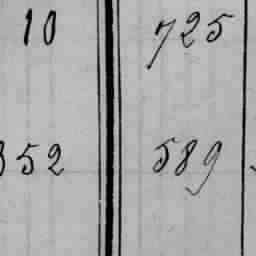 10 725
352 589